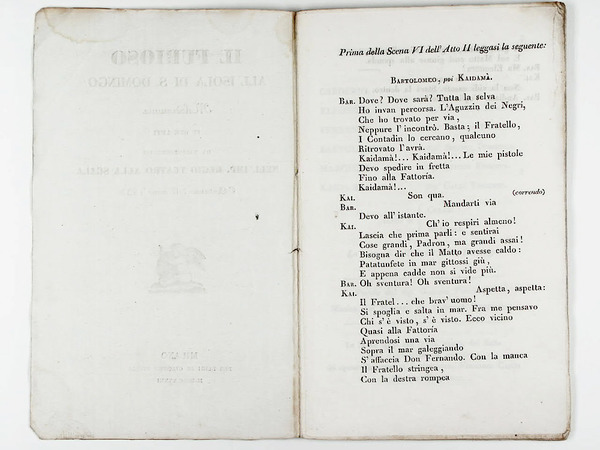 Prima della Scena VI dell'Atto II leggasi la seguente:
BARTOLOMEO, poi KAIDAMÀ.
BAR. Dove? Dove sarà? Tutta la selva
Ho invan percorsa. L'Aguzzin dei Negri,
Che ho trovato per via,
Neppure l'incontrò. Basta; il Fratello,
I Contadin lo cercano, qualcuno
Ritrovato l'avrà.
Kaidamà!... Kaidamà!... Le mie pistole
Devo spedire in fretta
Fino alla Fattoria.
Kaidamà!...
KAI. Son qua. (correndo)
BAR. Mandarti via
Devo all'istante.
KAI. Ch'io respiri almeno!
Lascia che prima parli: e sentirai
Cose grandi, Padron, ma grandi assai!
Bisogna dir che il Matto avesse caldo:
Patatunfete in mar gittossi giù,
E appena cadde non si vide più.
BAR. Oh sventura! Oh sventura!
KAI. Aspetta, aspetta:
Il Fratel... che brav'uomo!
Si spoglia e salta in mar. Fra me pensavo
Chi s'è visto, s'è visto. Ecco vicino
Quasi alla Fattoria
Aprendosi una via
Sopra il mar galeggiando
S'affaccia Don Fernando. Con la manca
Il Fratello stringea,
Con la destra rompea
IL FURIOSO
ALL'ISOLA DI S. DOMINGO
MILANO